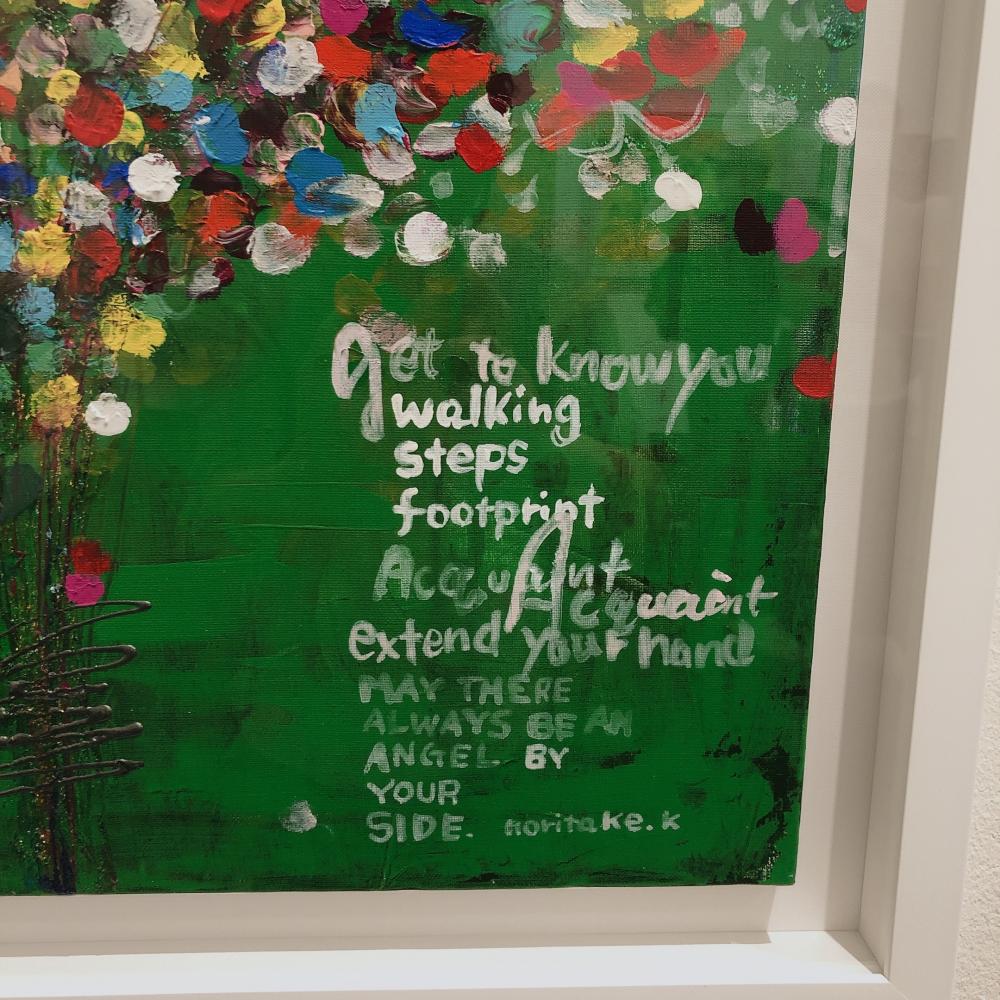 get to know you
walking
steps
footprint
Acquaint
Acquaint
extend your hand
MAY THERE
ALWAYS BE AN
ANGEL BY
YOUR
SIDE. noritake.k